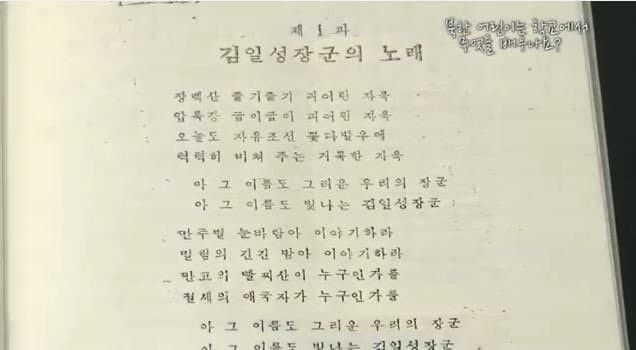 북한 어린이는 학교에서
무엇을 배우나요?
제 1 과
김일성장군의 노래
장백산 줄기줄기 피어린 자욱
압록강 굽이굽이 피어린 자욱
오늘도 자유조선 꽃다발우에
력력히 비쳐 주는 거룩한 자욱
아 그 이름도 그리운 우리의 장군
아 그 이름도 빛나는 김일성장군
만주벌 눈바람아 이야기하라
밀림의 긴긴 밤아 이야기하라
만고의 빨찌산이 누구인가를
절세의 애국자가 누구인가를
아 그 이름도 그리운 우리의 장군
아 그 이름도 빛나는 김일성장군